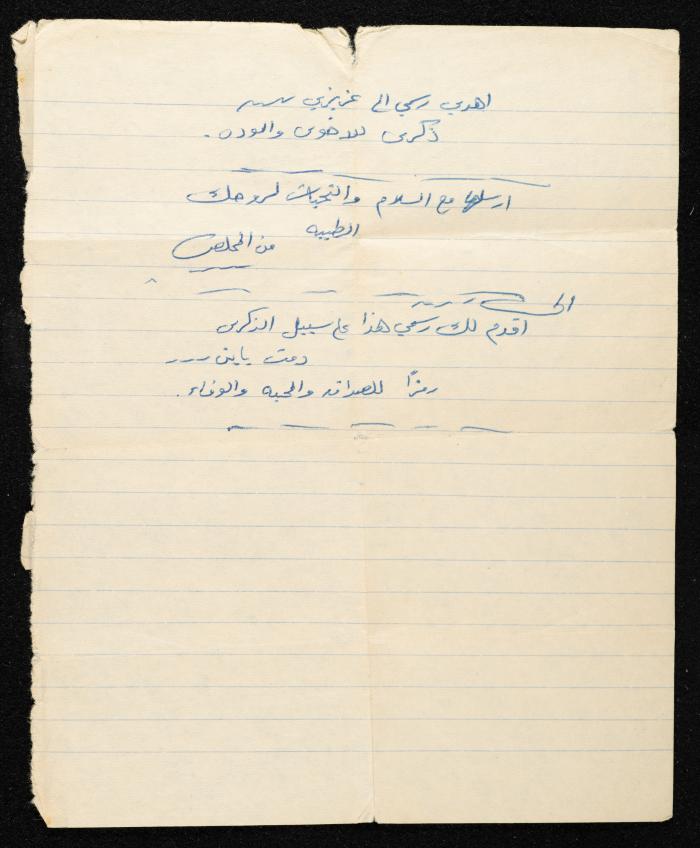 اهدي رسمي الى عزيزي ....
ذكرى للاخوى والوده .
ارسلها مع السلام والتحيات لروحك
الطيبه
من المخلص
الى ....
اقدم لك رسمي هذا على سبيل الذكرى
دمت ....
رمزًا للصداقه والمحبه والوفاء .